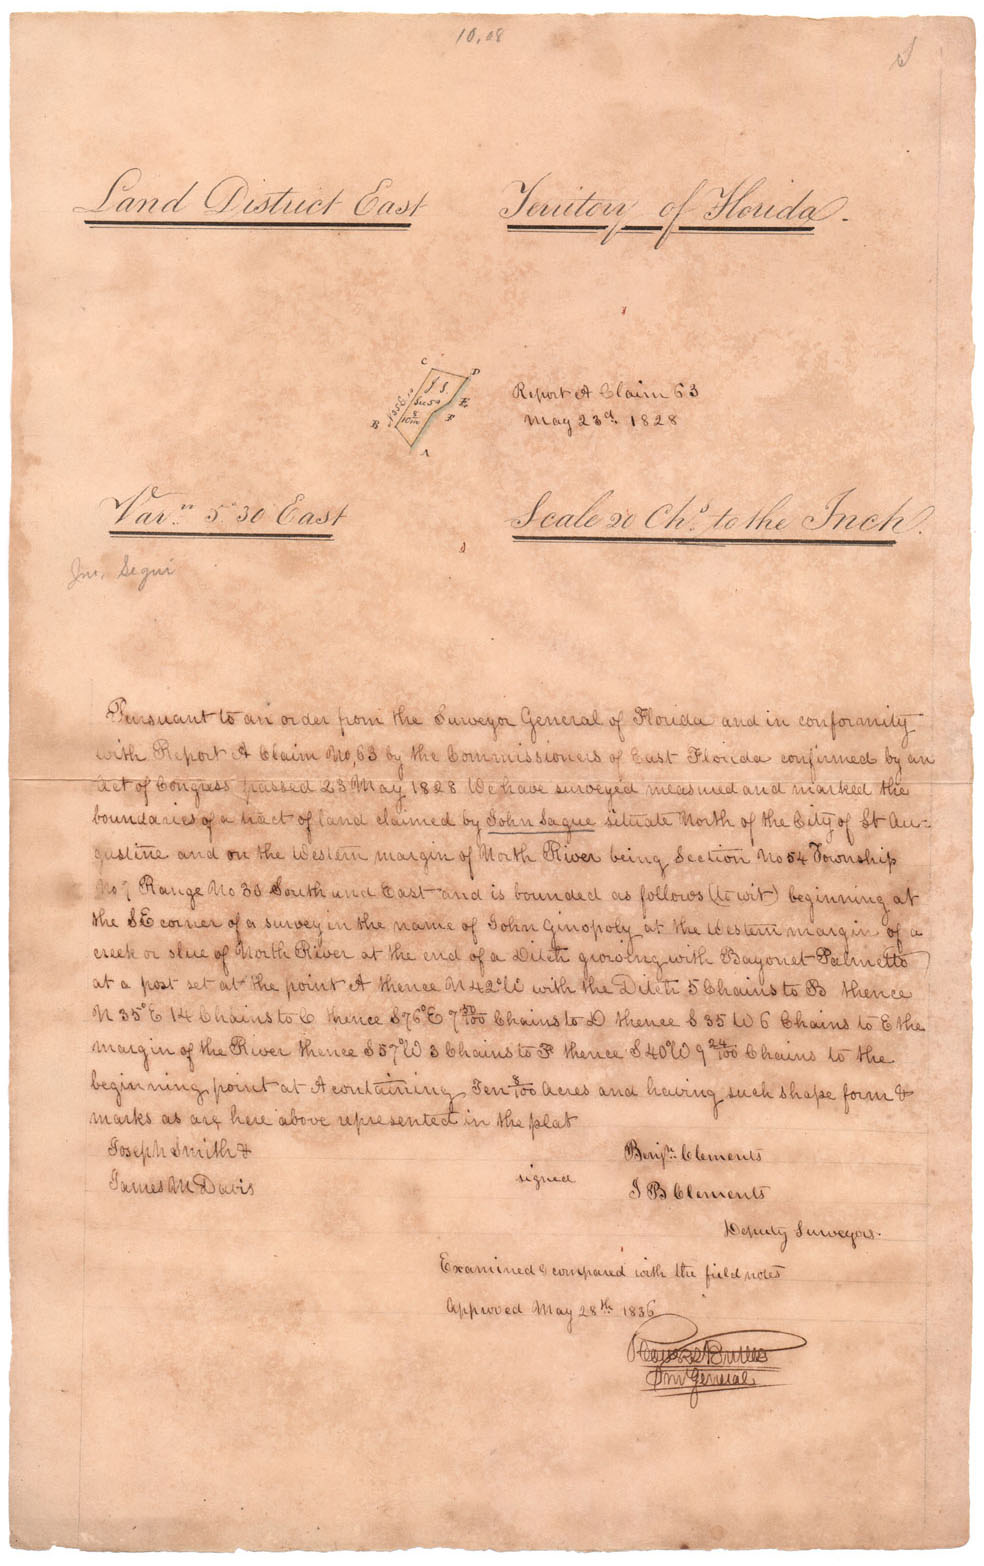 10,08
Land District East Territory of Florida.
C D
J. S.
Sec 54
N 35 E 14
10 8/100
B E F
A
Report A Claim 63
May 23d. 1828
Varn. 5° 30 East Scale 20 Chs. to the Inch.
Jno. Segui
Pursuant to an order from the Surveyor General of Florida and in conformity
with Report A Claim No, 63 by the Commissioners of East Florida confirmed by an
act of Congress passed 23 May 1828 We have surveyed measured and marked the
boundaries of a tract of land claimed by John Sague situate North of the City of St Au-
gustine and on the Western margin of North River being Section No 54 Township
No 7 Range No 30 South and East and is bounded as follows (to wit) beginning at
the SE corner of a survey in the name of John Ginopoly at the Western margin of a
creek or slue of North River at the end of a Ditch growing with Bayonet Palmetto
at a post set at the point A thence N 42° W with the Ditch 5 Chains to B thence
N 35° E 14 Chains to C thence S 76° E 7 30/100 Chains to D thence S 35 W 6 Chains to E the
margin of the River thence S 57° W 3 Chains to F thence S 40 W 9 24/100 Chains to the
beginning point at A containing Ten 8/100 Acres and having such shape form &
marks as are here above represented in the plat
Joseph Smith & Benjn. Clements
James M Davis signed J B Clements
Deputy Surveyors.
Examined & compared with the field notes
Approved May 28th 1836
Butler
Sur General